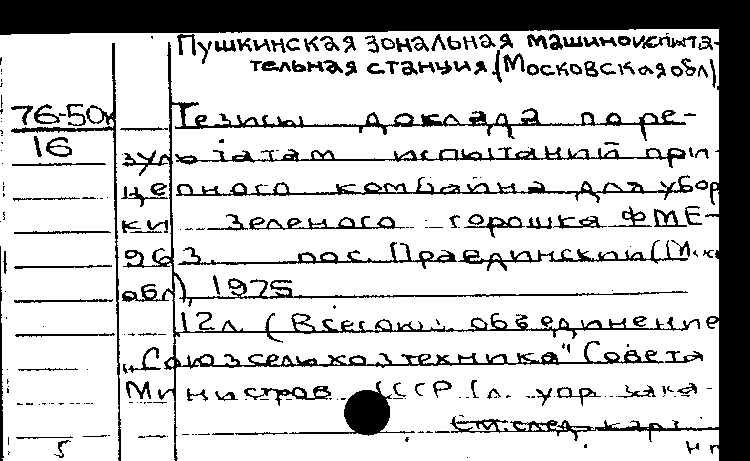 Пушкинская зональная машиноиспыта-
тельная станция (Московская обл)
76-50к
16
Тезисы доклада по ре-
зультатам испытаний при-
цепного комбайна для убор
ки зеленого горошка ФМЕ-
963. пос. Правдинский (Мск
обл), 1975
12л. (Всесоюз. объединение
„Союзсельхозтехника" Совета
Министров СССР Гл. упр. зака-
См. след. карт.
5